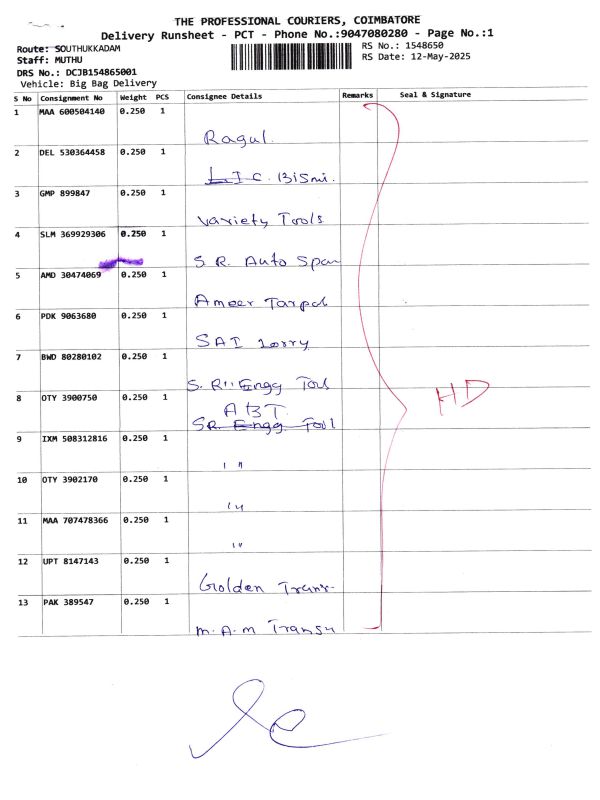 THE PROFESSIONAL COURIERS, COIMBATORE
Delivery Runsheet - PCT - Phone No.:9047080280 - Page No.:1
Route: SOUTHUKKADAM
RS No.: 1548650
Staff: MUTHU
RS Date: 12-May-2025
DRS No.: DCJB154865001
Vehicle: Big Bag Delivery
S No Consignment No Weight PCS Consignee Details Remarks Seal & Signature
1 MAA 600504140 0.250 1
Ragul.
2 DEL 530364458 0.250 1
L I C. Bismi.
3 GMP 899847 0.250 1
Variety Tools
4 SLM 369929306 0.250 1
S. R. Auto Spar
5 AMD 30474069 0.250 1
Ameer Tarpal
6 PDK 9063680 0.250 1
SAI Lorry
7 BWD 80280102 0.250 1
S. R. Engg Tool
8 OTY 3900750 0.250 1
A B T.
SR. Engg. Tool
HD
9 IXM 508312816 0.250 1
"
10 OTY 3902170 0.250 1
"
11 MAA 707478366 0.250 1
"
12 UPT 8147143 0.250 1
Golden Trans.
13 PAK 389547 0.250 1
M. A. M Trans